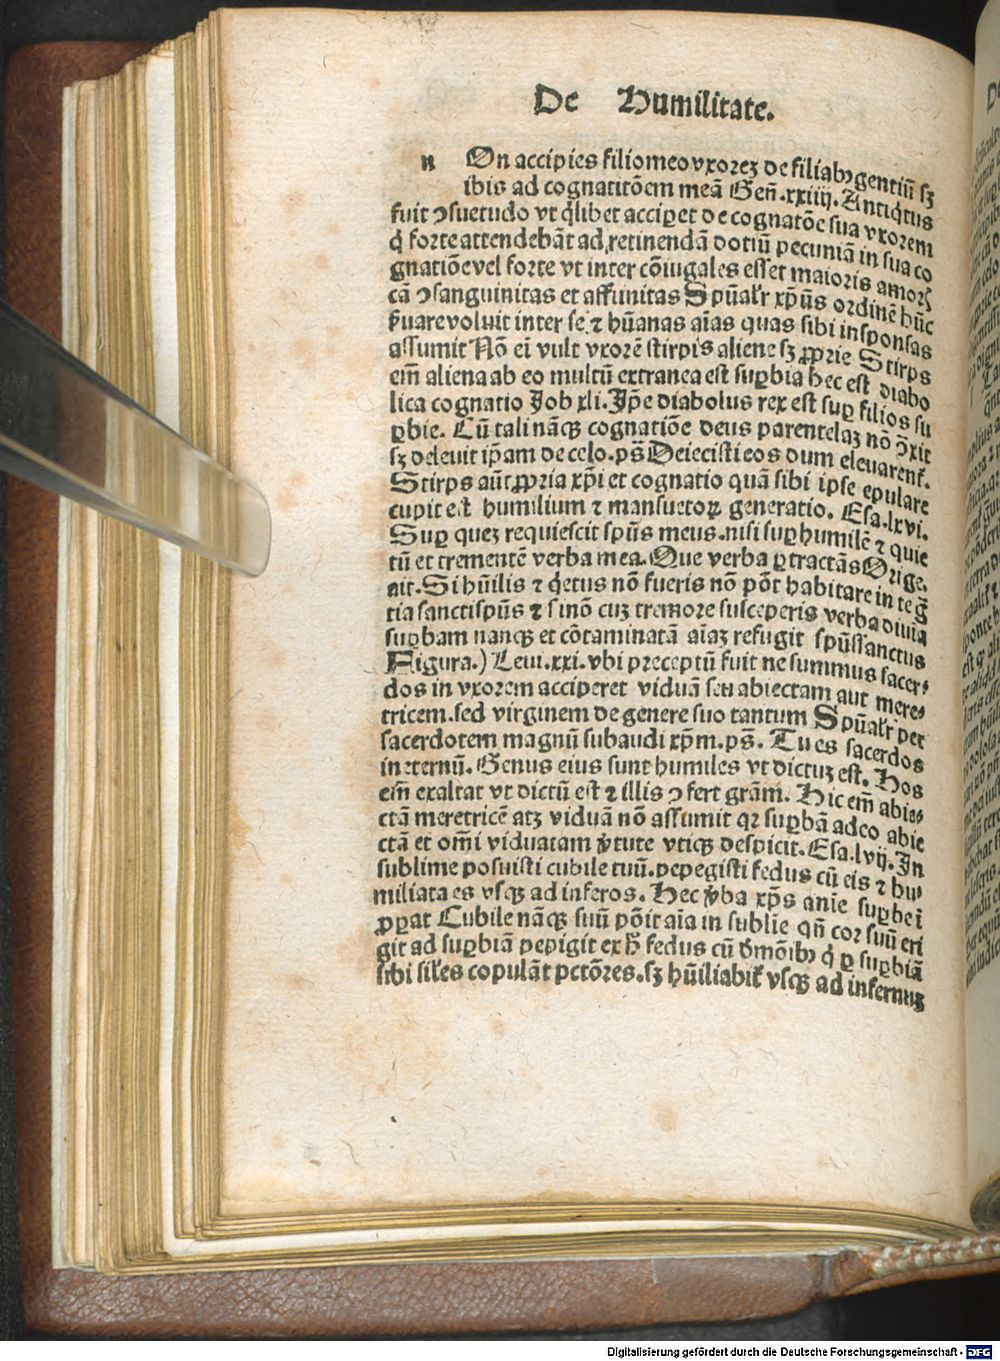 De Humilitate.
n On accipies filio meo vxoreʒ de filiabꝰ gentiū sʒ
ibis ad cognatitōem meā Geñ.xxiiij. Antiq̇tus
fuit ꝯsuetudo vt q̇libet accipet de cognatōe sua vxorem
q̇ forte attendebāt ad retinendā dotiū pecuniā in sua co
gnatiōe vel forte vt inter cōiugales esset maioris amorꝭ
cā ꝯsanguinitas et affinitas Spūalr̄ xp̄us ordinē hūc
ẜuare voluit inter se ⁊ hūanas aīas quas sibi insponsas
assumit Nō eī vult vxorē stirpis aliene sʒ ꝓprie Stirps
em̄ aliena ab eo multū extranea est suꝑbia hec est diabo
lica cognatio Job xli. Ip̄e diabolus rex est suꝑ filios su
ꝑbie. Cū tali nāqꝫ cognatiōe deus parentelaʒ nō ꝯ̄xit
sʒ deleuit ip̄am de celo. ps̄ Deiecisti eos dum eleuarent̄.
Stirps aūt ꝓpria xp̄i et cognatio quā sibi ipse epulare
cupit est humilium ⁊ mansuetoꝝ generatio. Esa.lxvi.
Suꝑ queʒ requiescit spūs meus. nisi suꝑ humilē ⁊ quie
tū et trementē verba mea. Que verba ꝑtractās Orige.
ait. Si hūilis ⁊ q̇etus nō fueris nō pōt habitare in te gr̄
tia sancti spūs ⁊ si nō cuʒ tremore susceperis verba diuia
suꝑbam nanqꝫ et cōtaminatā aīaʒ refugit spūssanctus
Figura.) Leui.xxi. vbi preceptū fuit ne summus sacer⸗
dos in vxorem acciperet viduā seu abiectam aut mere⸗
tricem. sed virginem de genere suo tantum Spūalr̄ per
sacerdotem magnū subaudi xp̄m. ps̄. Tu es sacerdos
in eternū. Genus eius sunt humiles vt dictuʒ est. Hos
em̄ exaltat vt dictū est ⁊ illis ꝯfert grām. Hic em̄ abie⸗
ctā meretricē atʒ viduā nō assumit qꝛ suꝑbā adeo abie
ctā et omī viduatam v̄tute vtiqꝫ despicit. Esa.lvij. In
sublime posuisti cubile tuū. pepegisti fedus cū eis ⁊ hu⸗
miliata es vsqꝫ ad inferos. Hec v̄ba xp̄s anīe suꝑbe ī
ꝓꝑat Cubile nāqꝫ suū pōit aīa in sublīe qn̄ cor suū eri
git ad suꝑbiā pepigit ex h̄ fedus cū d̄mōibꝰ q̇ ꝑ suꝑbiā
sibi sil̄es copulāt pctōres. sʒ hūiliabit̄ vsqꝫ ad infernuʒ
Digitalisierung gefördert durch die Deutsche Forschungsgemeinschaft - DFG